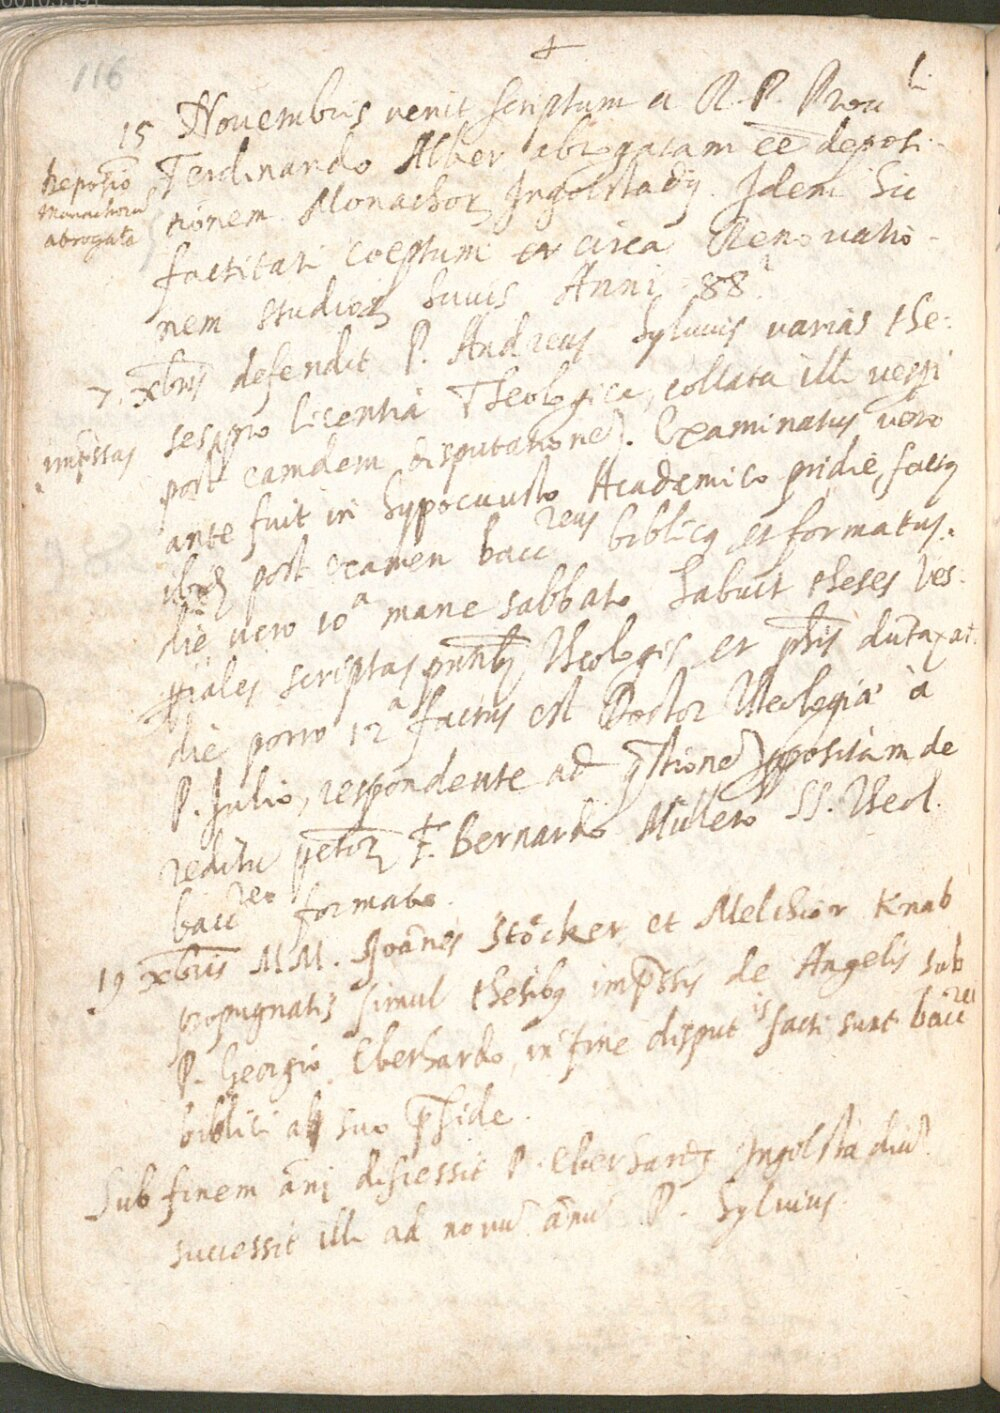 116
+
15 Novembris venit scriptum a R. P. Prou li
Ferdinando Alber abrogatam ee deposi-
tionem Monachor Ingolstadij. Idem hic
factitari coeptum et circa Renovatio-
nem studior huius Anni 88
Depositio
Monachorū
abrogata
7. Xbris defendit P. Andreas Sylvius varias the-
impssas
ses pro licentia Theologica, collata illi vespi
post eamdem disputationē. Examinatus vero
ante fuit in hypocausto Academico pridie, factq
ibid post examen bacc reus biblicq et formatus.
die vero 10a mane sabbato habuit theses Ves-
piales scriptas pntibq Theologis et phis dūtaxat.
die porro 12a factus est Doctor Theologiae à
P. Julio, respondente ad qstionē ppositam de
reditu pctor F. Bernardo Müllero SS. Theol.
bacc reo formato.
19 Xbris MM. Joānes Stöcker et Melchior Knab
propugnatis simul thesibq impssis de Angelis sub
P. Georgio Eberhardo, in fine disput is facti sunt bacc rei
biblici ab suo pside.
Sub finem āni discessit P. Eberhardq Ingolstadiū.
successit illi ad novū ānū P. Sylvius